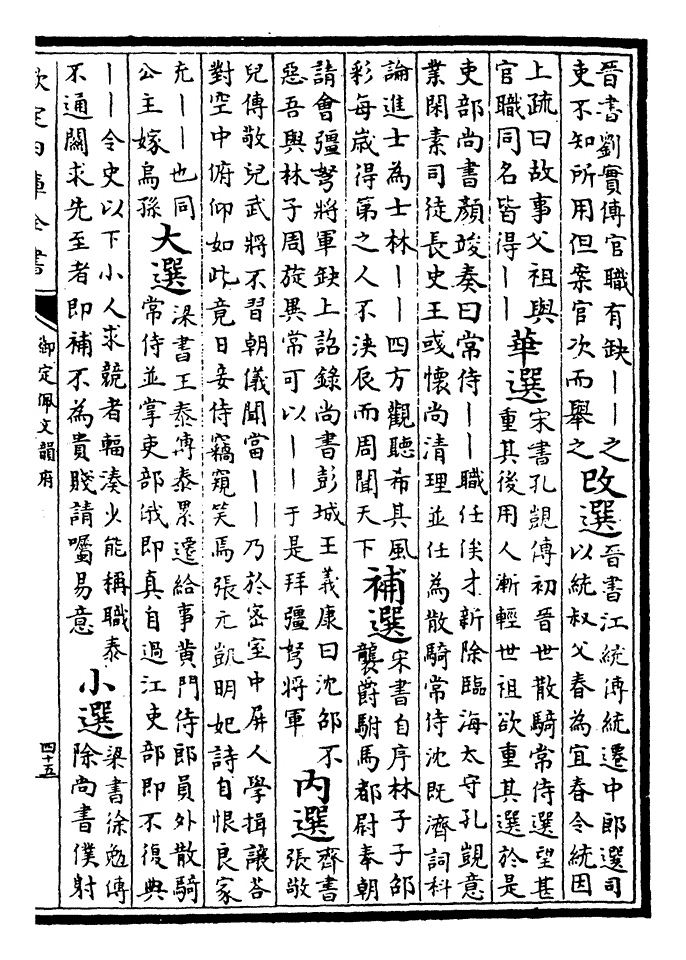 晋書劉實傳官職有缺丨丨之
吏不知所用但案官次而舉之
改選
晋書江統傳統遷中郎選司
以統叔父春為宜春令統因
上疏曰故事父祖與
官職同名皆得丨丨
華選
宋書孔覬傳初晋世散騎常侍選望甚
重其後用人漸輕世祖欲重其選於是
吏部尚書顏竣奏曰常侍丨丨職任俟才新除臨海太守孔覬意
業閑素司徒長史王彧懷尚清理並任為散騎常侍沈既濟詞科
論進士為士林丨丨四方觀聽希其風
彩每嵗得第之人不浹辰而周聞天下
補選
宋書自序林子子邵
襲爵駙馬都尉奉朝
請會彊弩將軍缺上詔錄尚書彭城王義康曰沈邵不
惡吾與林子周旋異常可以丨丨于是拜彊弩將軍
內選
齊書
張敬
兒傳敬兒武將不習朝儀聞當丨丨乃於密室中屏人學揖讓荅
對空中俯仰如此竟日妾侍竊窺笑焉張元凱明妃詩自恨良家
充丨丨也同
公主嫁烏孫
大選
梁書王泰傳泰累遷給事黄門侍郎員外散騎
常侍並掌吏部俄即真自過江吏部即不復典
丨丨令史以下小人求競者輻湊少能稱職泰
不通關求先至者即補不為貴賤請囑易意
小選
梁書徐勉傳
除尚書僕射
欽定四庫全書
御定佩文韻府
四十五